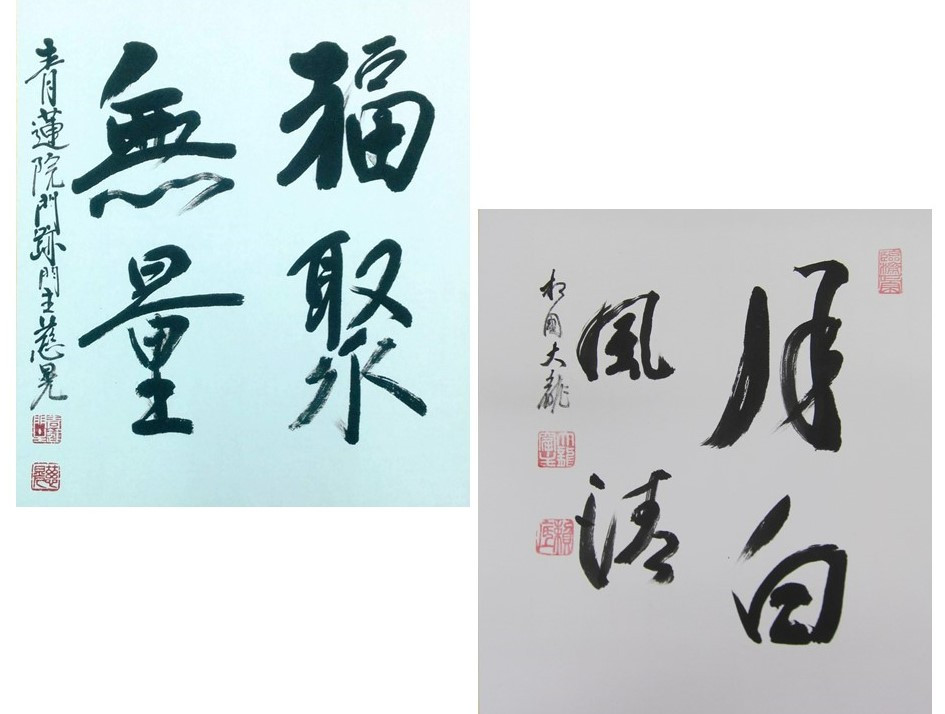 福聚
無量
青蓮院門跡門主慈晃
月白
風清
相國大龍